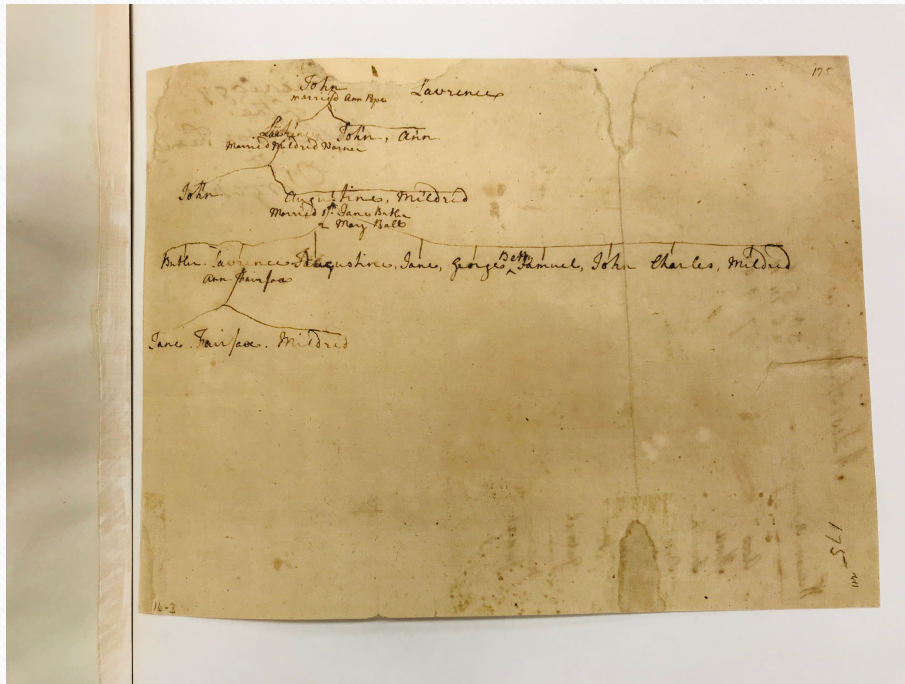 175
John Lawrence
married Ann Pope
John, Ann
Married Mildred Warner
John Augustine, Mildred
Married 1st. Jane Butler
2 Mary Ball
Betty
Butler. Lawrence Augustine, Jane, George ^ Samuel, John Charles, Mildred
Ann Fairfax
Jane. Fairfax. Mildred
175
16-3